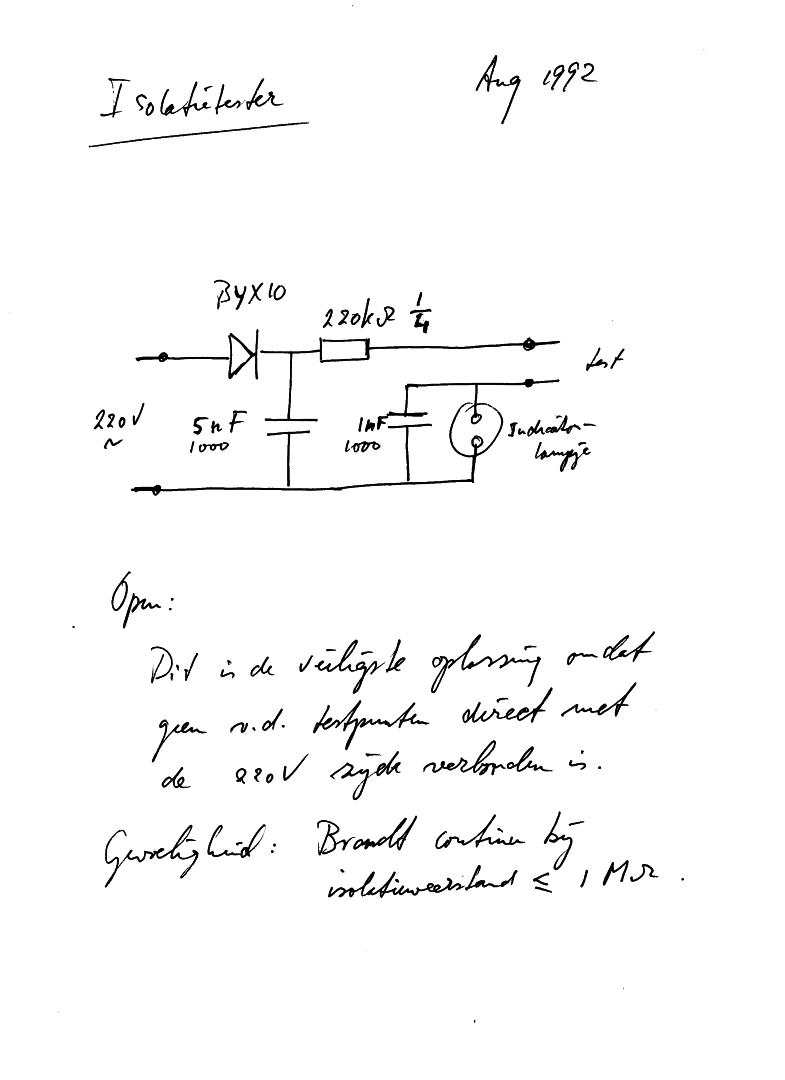 Isolatietester
Aug 1992
BYX10
220kΩ 1/4
test
220V
~
5nF
1000
1nF
1000
Indicator-
lampje
Opm:
Dit is de veiligste oplossing omdat
geen v.d. testpunten direct met
de 220V zijde verbonden is.
Gevoeligheid: Brandt continu bij
isolatieweerstand ≤ 1 MΩ.